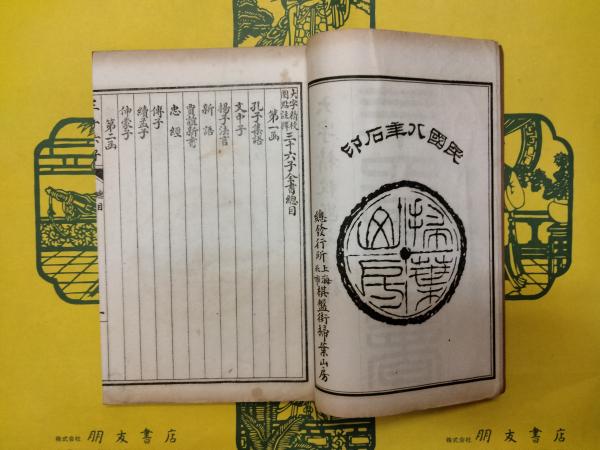 民國八年石印
掃葉山房
總發行所上海北市棋盤街掃葉山房
大字精校
圈點註釋
三十六子全書總目
第一函
孔子集語
文中子
楊子法言
新語
賈誼新書
忠經
傅子
續孟子
伸蒙子
第二函
總目
一
株式会社 朋友書店
株式会社 朋友書店